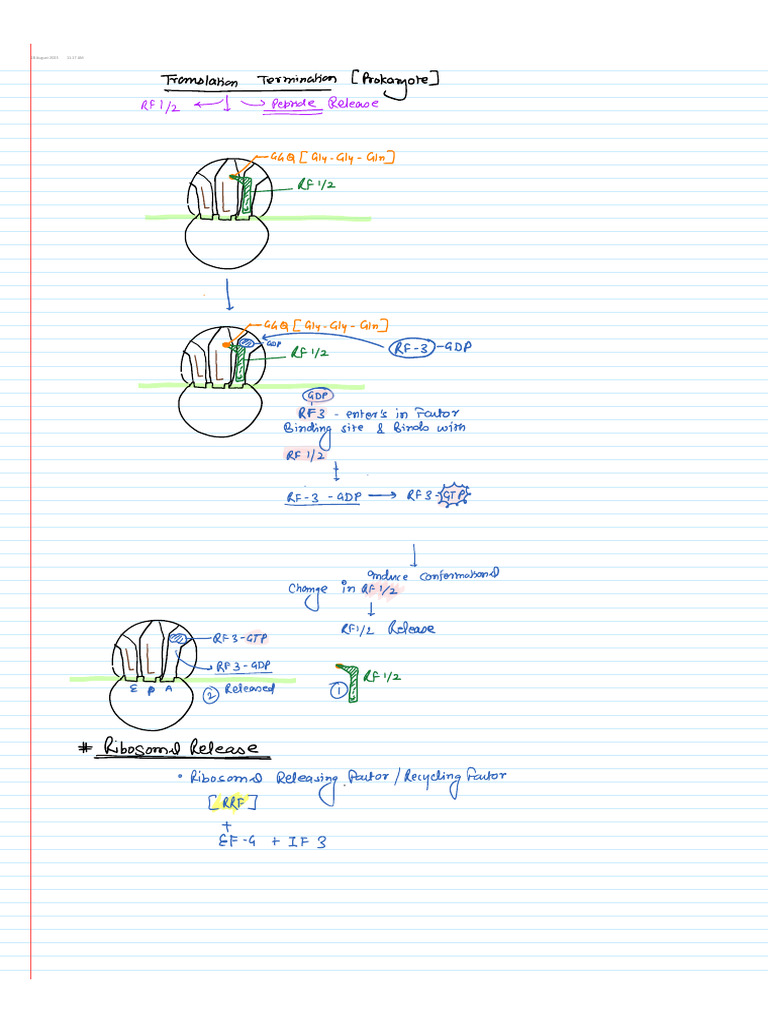 Translation Termination [Prokaryote]
RF 1/2 ← ↓ → Peptide Release
GGQ [Gly-Gly-Gln]
RF 1/2
GGQ [Gly-Gly-Gln]
GDP
RF 1/2
RF-3 -GDP
GDP
RF3 - enter's in Factor
Binding site & Binds with
RF 1/2
RF-3 -GDP → RF3-GTP
induce conformational
Change in RF 1/2
RF1/2 Release
RF3-GTP
RF3-GDP
E P A
② Released
① RF 1/2
# Ribosomal Release
• Ribosomal Releasing Factor / Recycling Factor
[RRF]
+
EF-G + IF 3